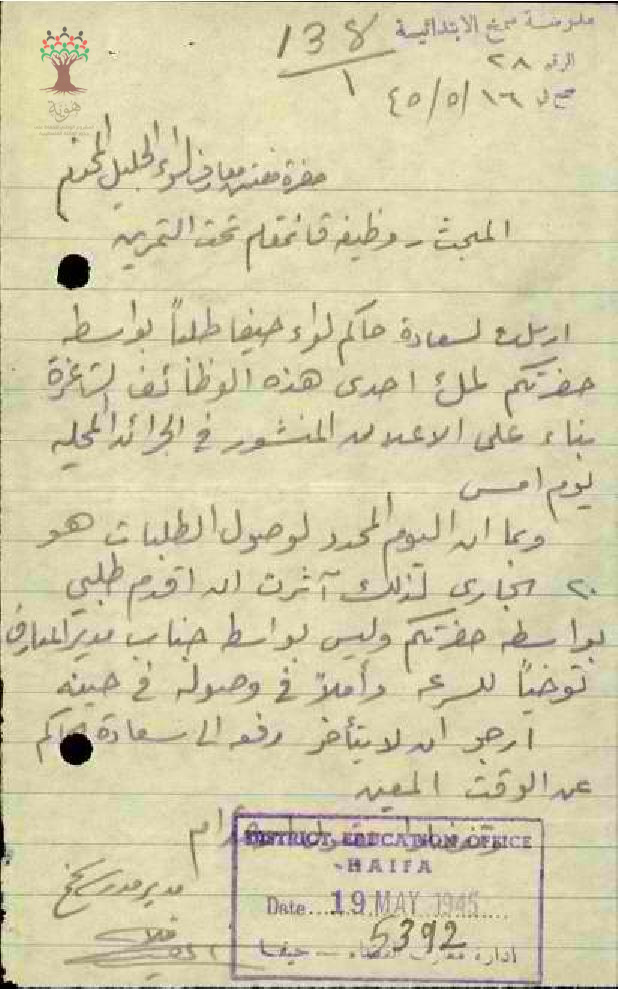 مدرسة سمخ الابتدائية
138
1
الرقم ٢٨
سمخ في ١٦/٥/٤٥
هوية
حضرة مفتش معارف لواء الجليل المحترم
المبحث - وظيفة قائمقام تحت التمرين
ارسلت لسعادة حاكم لواء حيفا طلباً بواسطة
حضرتكم لملئ احدى هذه الوظائف الشاغرة
بناء على الاعلان المنشور في الجرائد المحلية
يوم امس
وبما ان اليوم المحدد لوصول الطلبات هو
٢٠ الجاري لذلك آثرت ان اقدم طلبي
بواسطة حضرتكم وليس بواسطة جناب مدير المعارف
توخياً للسرعة وأملاً في وصوله في حينه
ارجو ان لا يتأخر رفعه الى سعادة الحاكم
عن الوقت المعين
وتفضلوا بقبول الاحترام
DISTRICT EDUCATION OFFICE
-HAIFA
Date....19 MAY 1945
5392
ادارة معارف القضاء - حيفا
مدير مدرسة سمخ